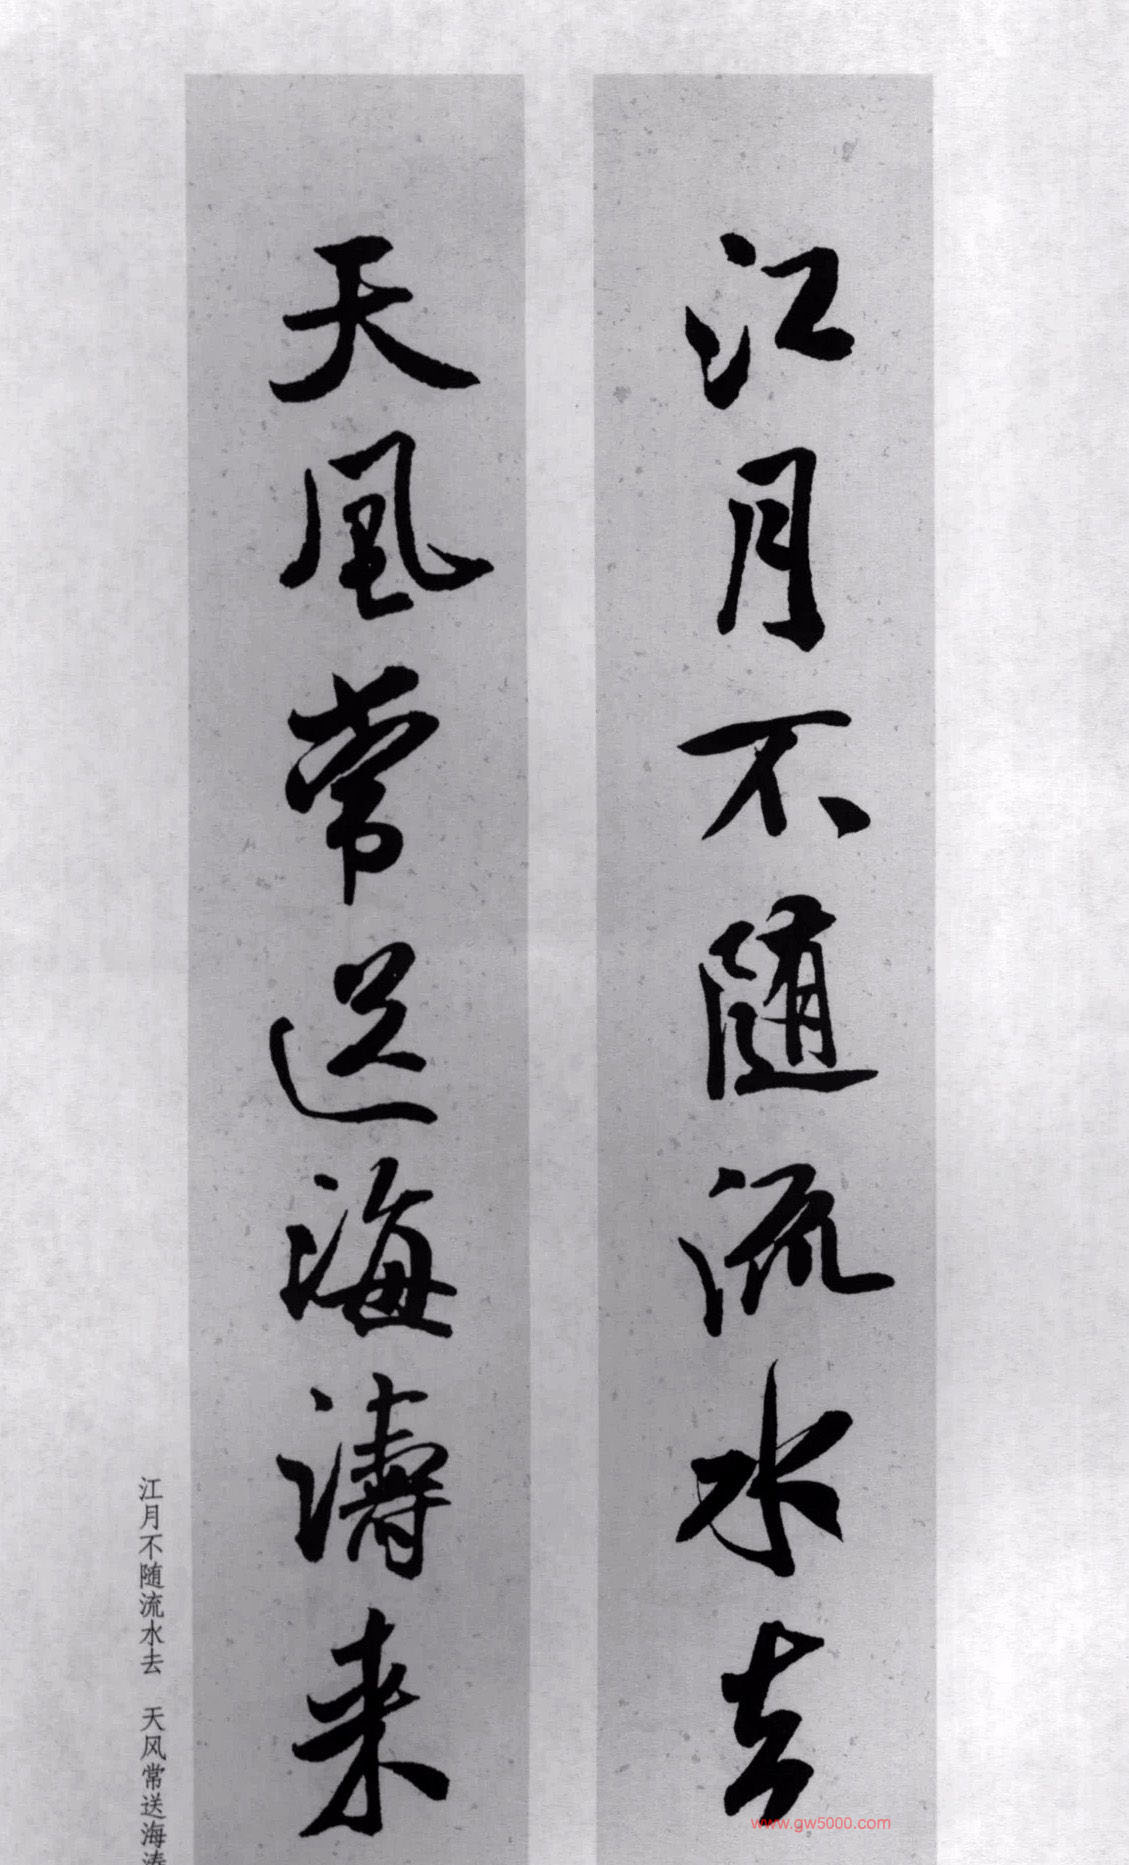 江月不随流水去
天风常送海涛来
江月不随流水去 天风常送海涛
www.gw5000.com